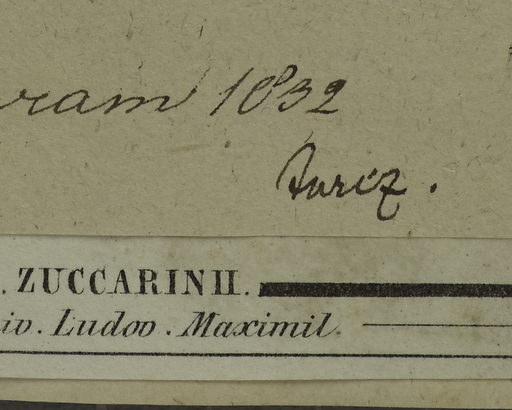 ram 1832
Turcz.
. ZUCCARINII.
iv. Ludov. Maximil.